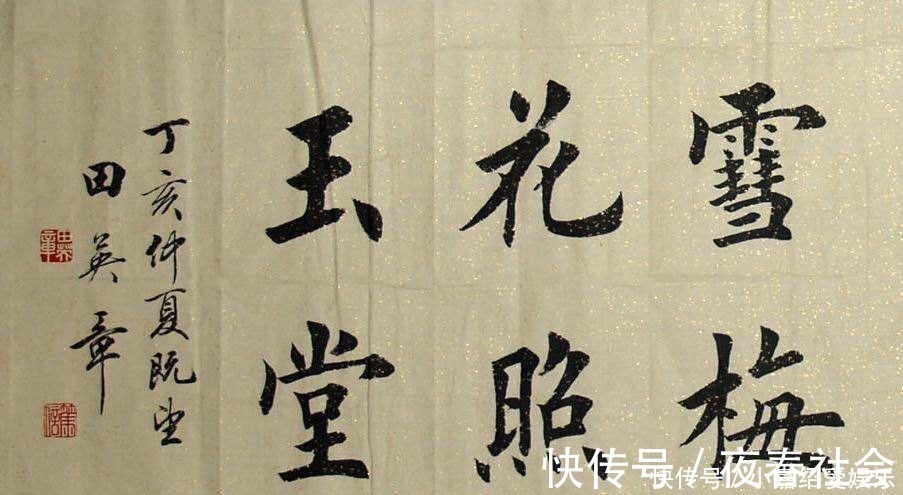 雪梅
花照
玉堂
丁亥仲夏既望
田英章
快传号 / 夜春社会
快传号